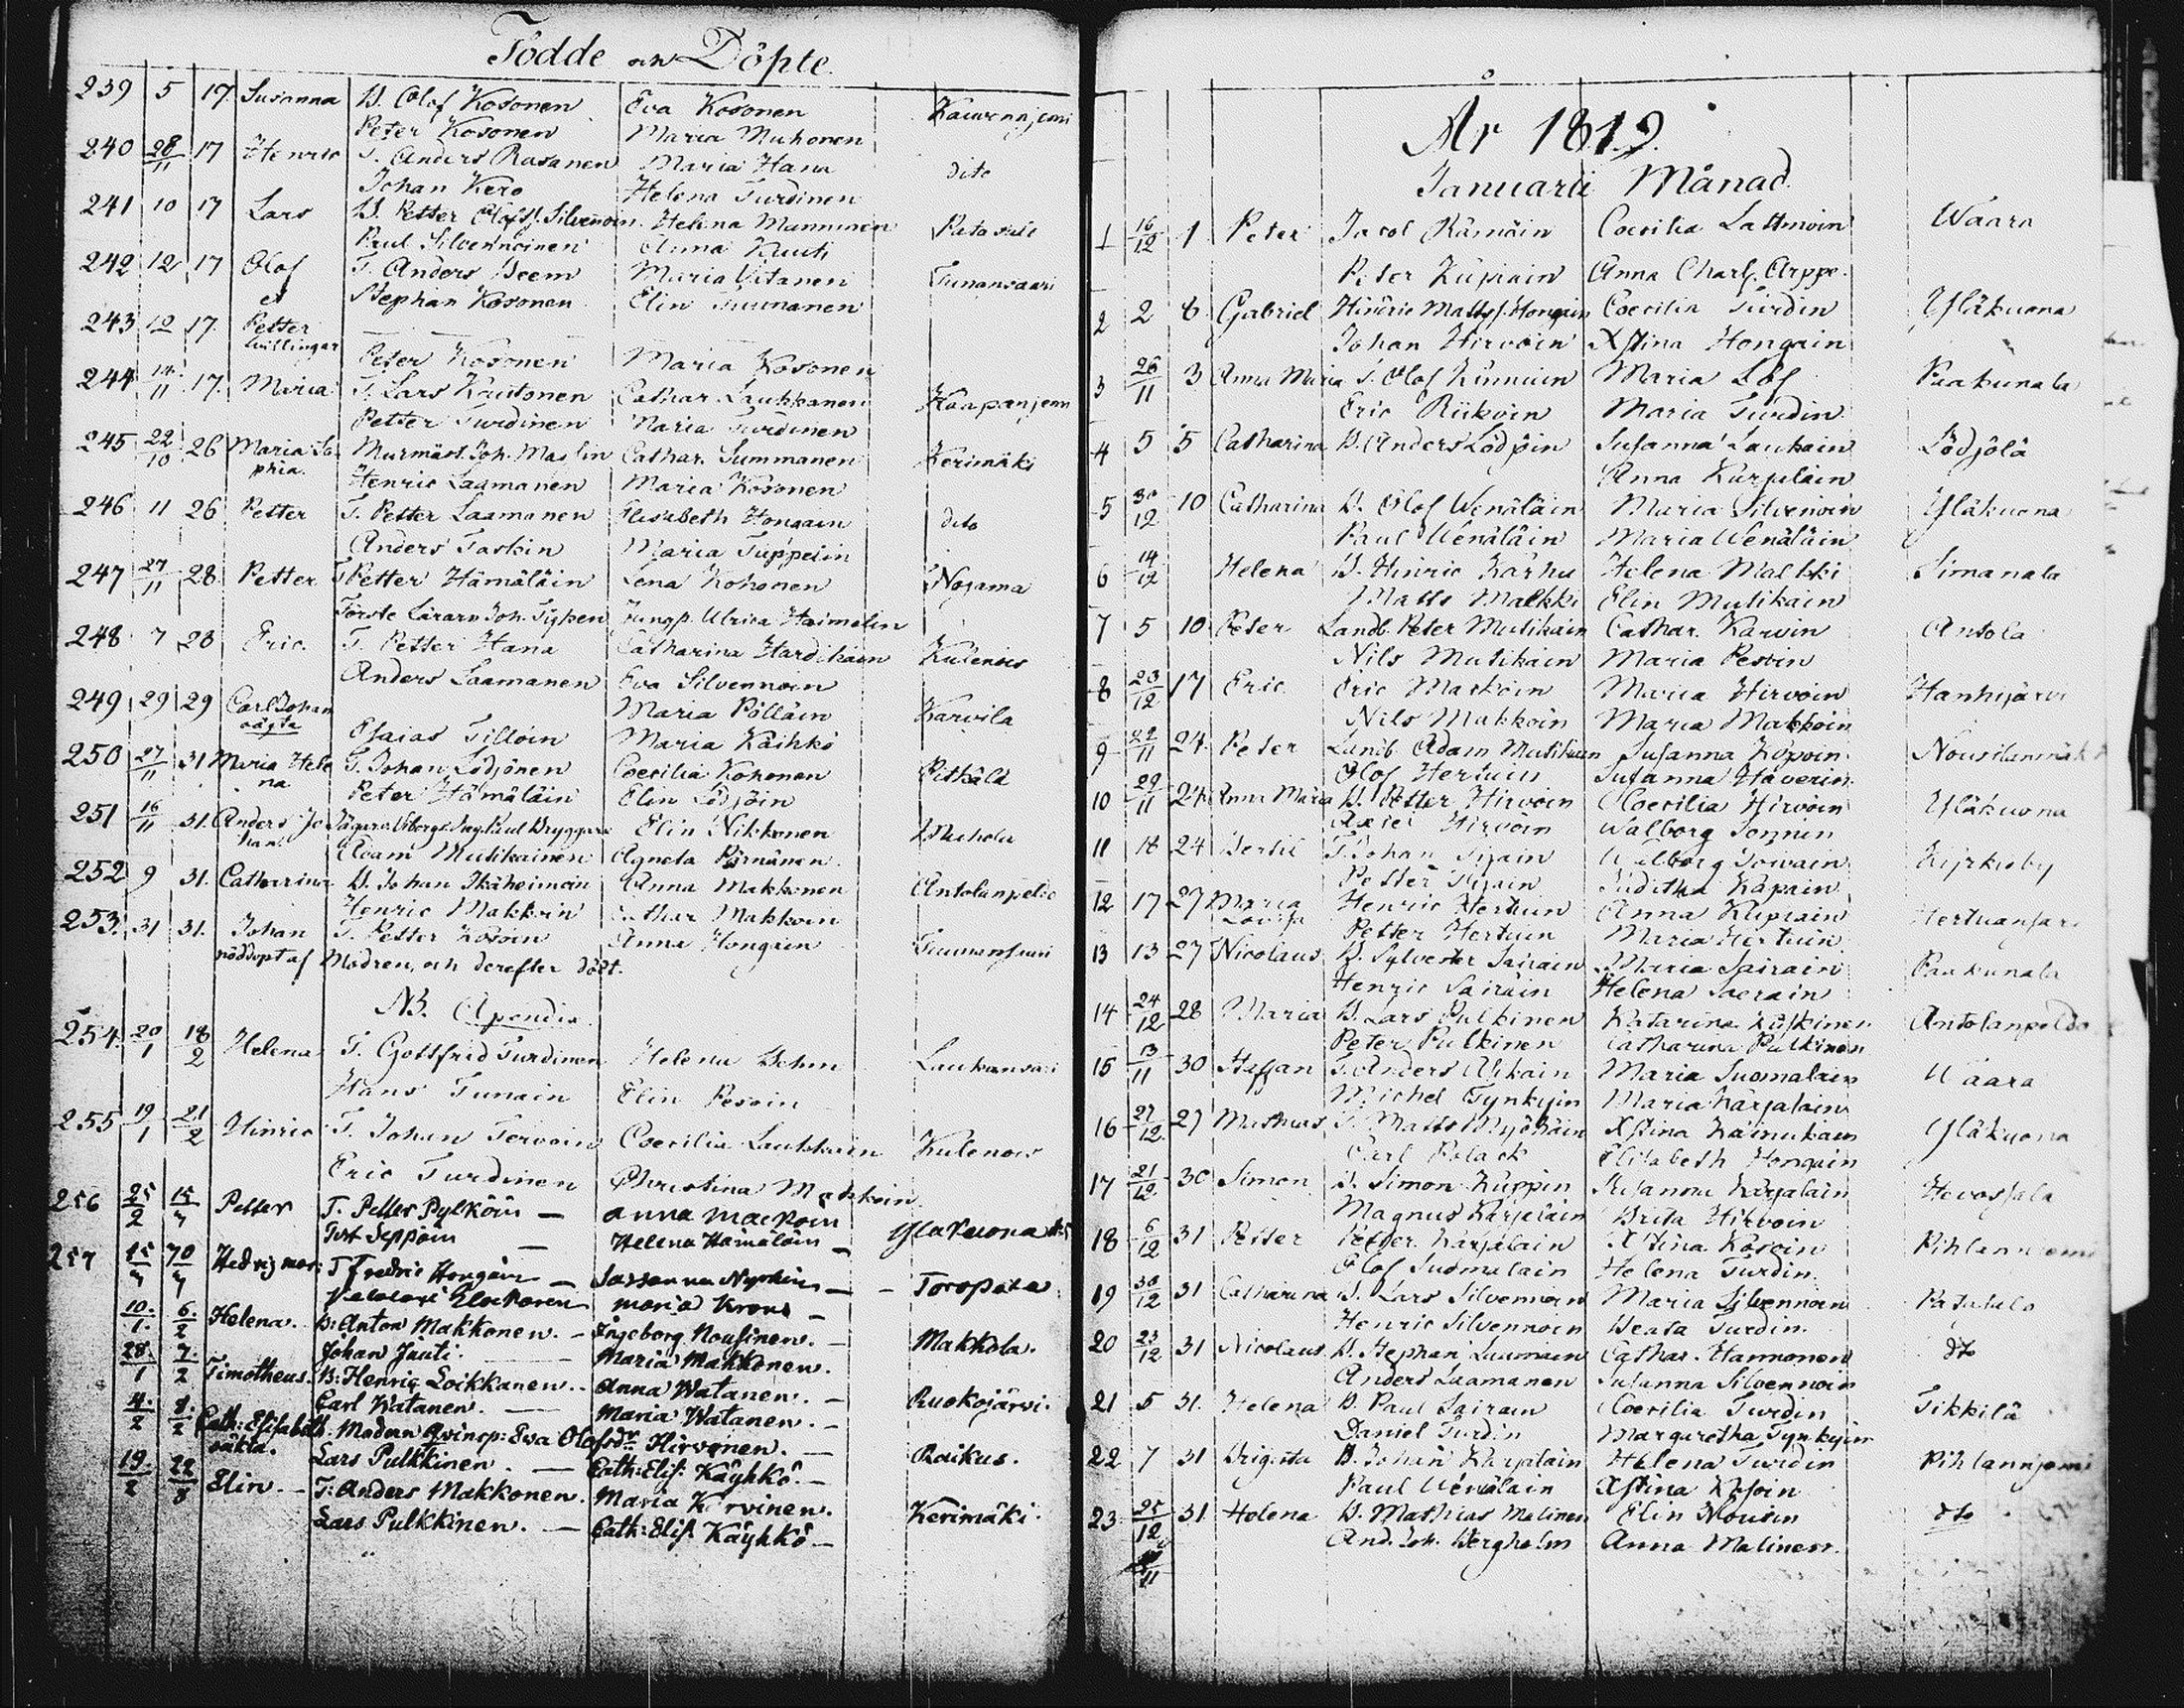 Födde och Döpte.
239 5 17. Susanna B. Olof Kosonen Eva Kosonen
Peter Kosonen Maria Muhonen
240 28/11 17 Henric T. Anders Rasanen Maria Hana dito
Johan Kero Helena Turdinen
241 10 17 Lars B. Petter Olofss. Silvenoin. Helena Manninen Patasalo
Paul Silvennoinen Anna Kuuti
242 12 17 Olof T. Anders Beem Maria Vitanen Tunansaari
et Stephan Kosonen Elin Tuunanen
243 12 17. Petter
tvillingar Peter Kosonen Maria Kosonen
244 14/11 17. Maria T. Lars Kautonen Cathar. Laukkanen
Petter Turdinen Maria Turdinen
245 22/10 26 Maria So Murmäst. Joh. Maslin Cathar. Summanen Kerimäki
phia. Henric Laamanen Maria Kosonen
246 11 26 Petter T. Petter Laamanen Elisabeth Hongain dito
Anders Taskin Maria Tuppein
247 27/11 28 Petter T Petter Hämäläin Lena Kohonen Nojama
Förste Lärarn Joh. Tyken Jungf. Ulrica Haimelin
248 7 28 Eric. T. Petter Hana Catharina Hardikain Kulenois
Anders Laamanen Eva Silvennoin
249 29 29 Carl Johan Maria Pölläin Karvila
oägta Esaias Tilloin Maria Käihkö
250 27/11 31 Maria Hele G. Johan Lodjönen Coecilia Kohonen Pithälä
na Peter Hämäläin Elin Lodjöin
251 16/11 31. Anders Jo Elin Nikkonen
han. Adam Mutikainen Agneta
252 9 31. Catharina B. Johan Ikäheimoin Anna Makkonen
Henric Makkoin Cathar Makkoin
253. 31 31. Johan T. Petter Kosoin Anna Hongain
nöddöpt af Modren, och derefter dödt.
NB. Apendix.
254. 20/1 18/2 Helena T. Gottfrid Turdinen Helena Behm Laukansari
Hans Tunain Elin Pesoin
255 19/1 21/2 Hinric T. Johan Tervoin Coecilia Laukkain Kulenois
Eric Turdinen Christina Makkoin.
256 25/2 Petter T. Petter Pylköin — Anna Mackoin
Tost Seppäin — Helena Hämäläin —
257 T fredric Hongain — — Toropala
Maria Krone —
10./1. 6./2 Helena. B: Anton Makkonen. — Ingeborg Nousinen. — Makkola.
Johan Jäuti. — Maria Makkonen.
28./1 7./2 Timotheus. B: Henric Loikkanen. — Anna Watanen. — Ruokojärvi.
Carl Watanen. — Maria Watanen. —
4./2 8./2 Cath: Elisabeth. Modren Qvinsp: Eva Olofsdr Hirvonen. — Raikus.
oäkta. Lars Pulkkinen. — Cath: Elis: Käyhkö. —
19./2 22/8 Elin. — T: Anders Makkonen. Maria Korvinen. Kerimäki.
Lars Pulkkinen. — Cath: Elis: Käyhkö —
År 1819.
Januarii Månad.
1 16/12 1 Peter Jacob Rämäin Coecilia Lattunoin Waara
Peter Kupiain Anna Charl. Arppe.
2 2 6 Gabriel Hindric Matss. Hongain Coecilia Turdin Yläkuona
Johan Hirvoin Xstina Hongain
3 26/11 3 Anna Maria T. Olof Kinnuin Maria Löf Paakunala
Eric Riikoin Maria Turdin
4 5 5 Catharina B. Anders Lödjöin Susanna Laukain Lödjölä
Anna Karjalain
5 30/12 10 Catharina B. Olof Wenäläin Maria Silvenoin Yläkuona
Paul Wenäläin Maria Wenäläin
6 14/12 Helena B. Hinric Karhu Helena Malkki Simanala
Matts Malkki Elin Mutikain
7 5 10 Peter Landb. Peter Mutikain Cathar. Karvin Antola
Nils Mutikain Maria Pesoin
8 23/12 17 Eric Eric Makkoin Maria Hirvoin Hanhijärvi
Nils Makkoin Maria Makkoin
9 22/11 24. Peter Landb. Adam Mutikain Susanna Kopoin
Olof Hertuin Susanna Haverin
10 29/11 24 Anna Maria B. Petter Hirvoin Coecilia Hirvoin Yläkuona
Hirvoin Walborg
11 18 24 Bertil T. Johan Walborg Kyrkoby
Petter Juditha
12 17 27 Maria Henric Hertuin Anna Kupiain
Lovisa Petter Hertuin Maria Hertuin
13 13 27 Nicolaus B. Sylvester Sairain Maria Sairain Paakunala
Henric Sairain Helena Sairain
14 24/12 28 Maria B. Lars Pulkinen Katarina Antolanpeldo
Peter Pulkinen Catharina Pulkinen
15 13/11 30 Staffan T. Anders Maria Suomalain Waara
Michel Tynkyin Maria Karjalain
16 27/12. 27 Mathias T. Matts Myöhäin Xstina Kainukain Yläkuona
Carl Polack Elisabeth Hongain
17 21/12. 30 Simon B. Simon Kuppin Susanna Karjalain
Magnus Karjalain Brita Hirvoin
18 6/12 31 Petter Petter Karjalain Xstina Kosoin
Olof Suomalain Helena Turdin
19 30/12 31 Catharina B. Lars Silvennoin Maria Silvennoin
Henric Silvennoin Beata Turdin.
20 23/12 31 Nicolaus B. Stephan Laamanen Cathar. Hannonen dto
Anders Laamanen Susanna Silvennoin
21 5 31. Helena B. Paul Sairain Coecilia Turdin Tikkilä
Daniel Turdin Margaretha Tynkyin
22 7 31 Brigitta B. Johan Karjalain Helena Turdin
Paul Wenäläin Xstina Kosoin
23 25/12 31 Helena B. Mathias Malinen Elin Nousin dto
And. Joh. Bergholm Anna Malinen.